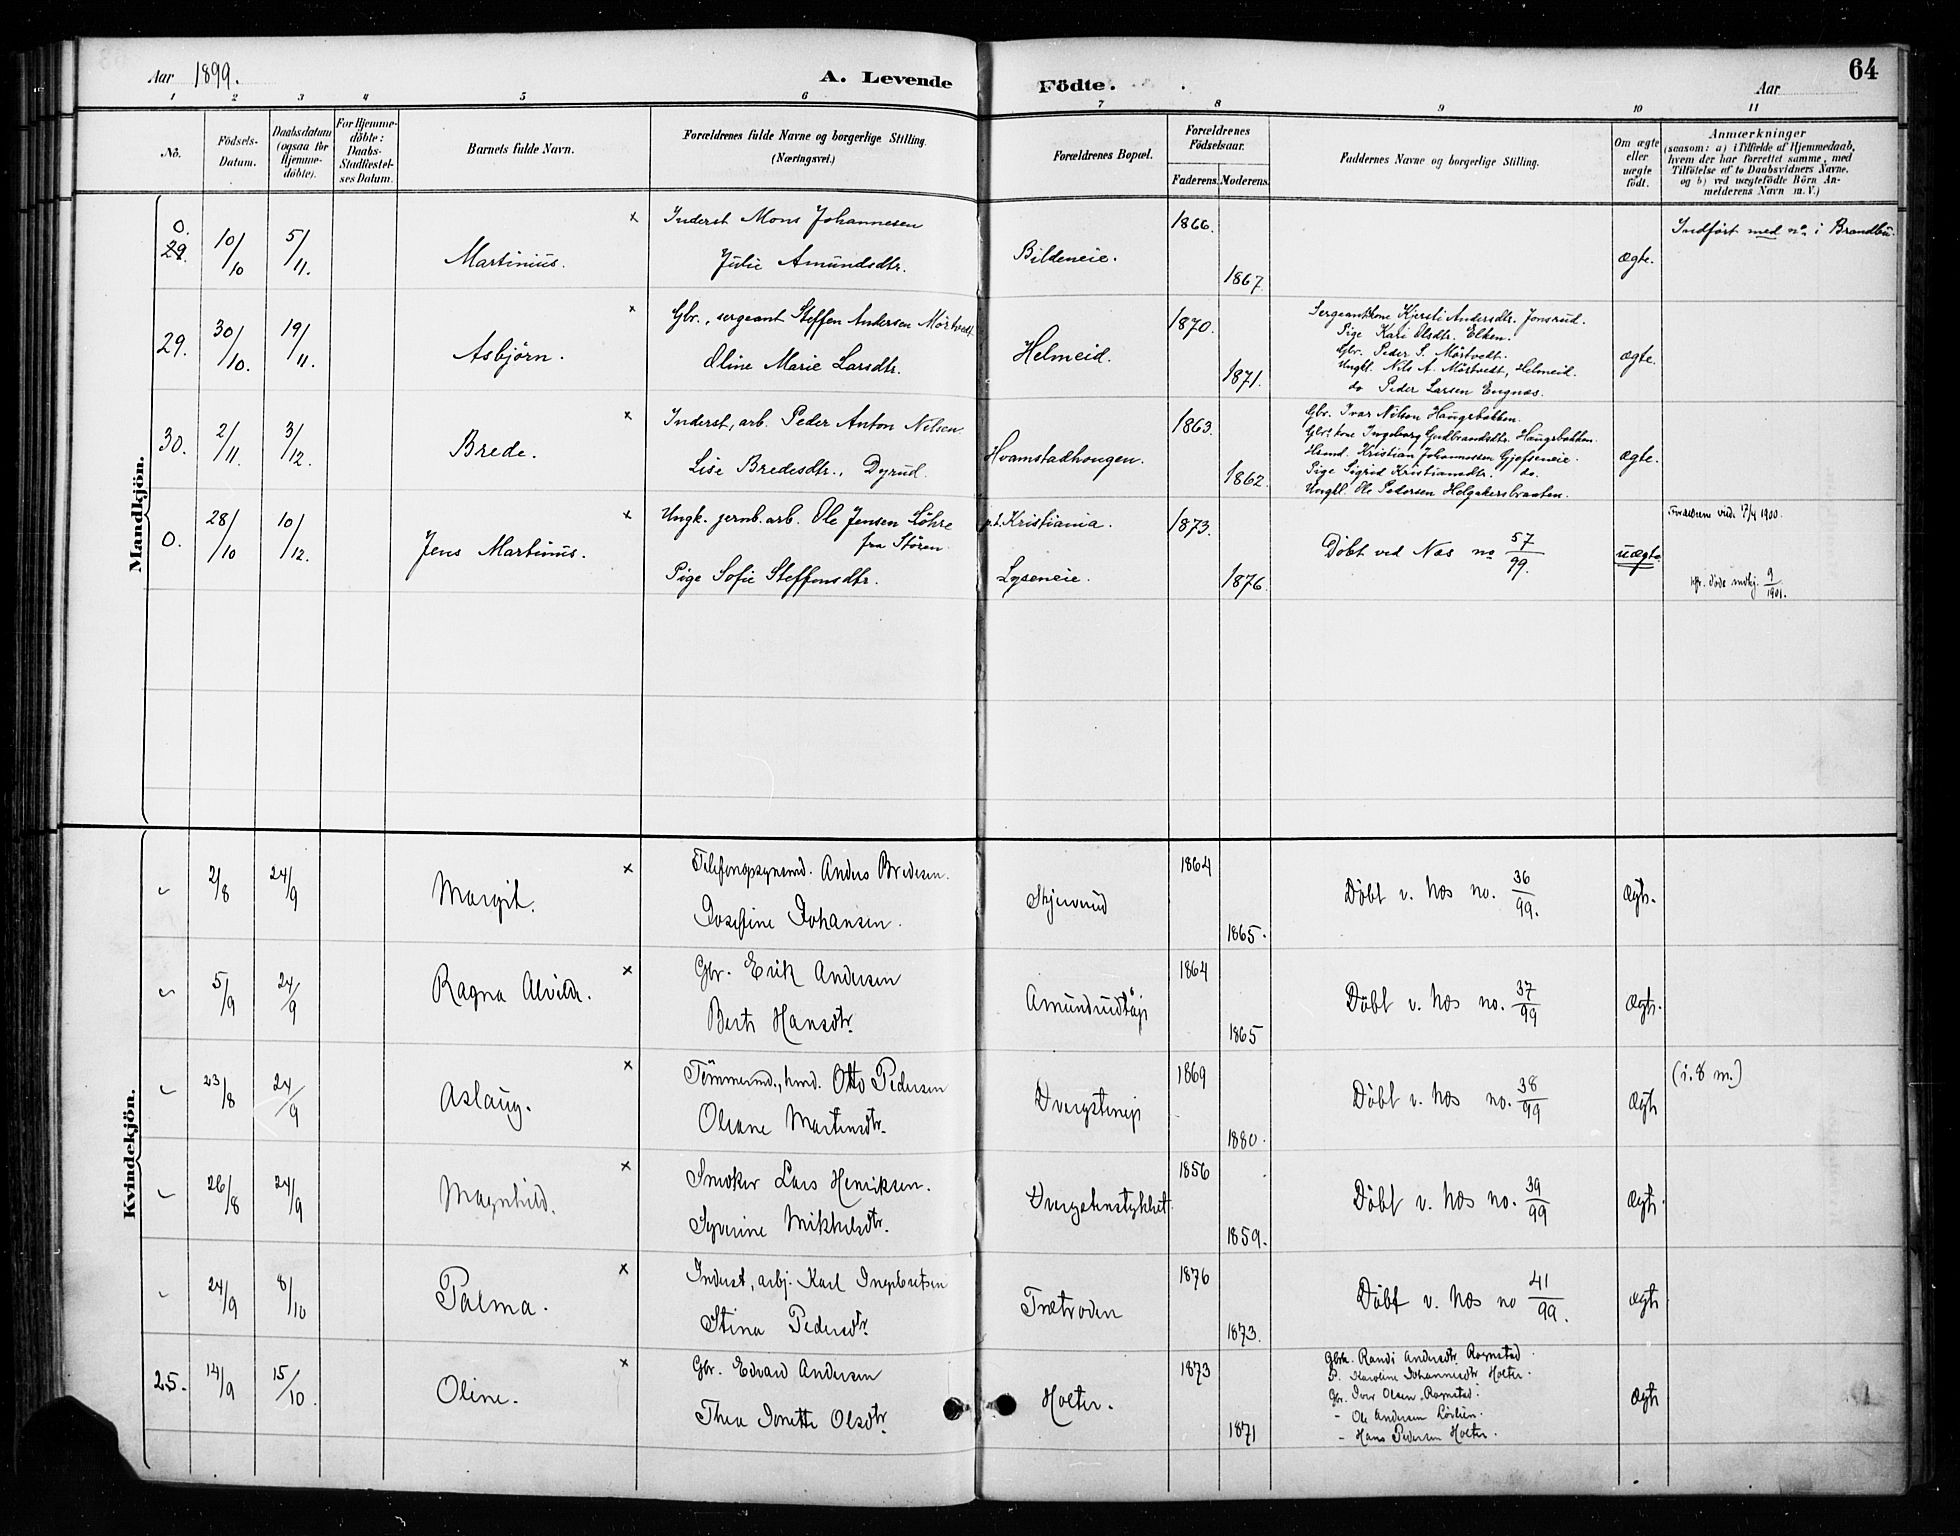 Aar 1899.
A. Levende Födte.
Aar
64
1 2 3 4 5 6 7 8 9 10 11
No.
Födsels-Datum.
Daabsdatum (ogsaa for Hjemme-döbte).
For Hjemme-döbte: Daabs-Stadfæstel-ses Datum.
Barnets fulde Navn.
Forældrenes fulde Navne og borgerlige Stilling. (Næringsvei.)
Forældrenes Bopæl.
Forældrenes Födselsaar.
Faderens. Moderens.
Faddernes Navne og borgerlige Stilling.
Om ægte eller uægte födt.
Anmærkninger (saasom: a) i Tilfælde af Hjemmedaab, hvem der har forrettet samme, med Tilföielse af to Daabsvidners Navne. og b) ved uægtefödte Börn An-melderens Navn m. V.)
Mandkjön.
0. 29. 10/10 5/11. Martinius. x
Inderst Mons Johannesen
Julie Amundsdtr.
Bildeneie. 1866. 1867. ægte.
Indført med no. i Brandbu.
29. 30/10. 19/11. Asbjörn. x
Gbr., sergeant Steffen Andersen Mörtvedt
Oline Marie Larsdtr.
Helmeid. 1870. 1871.
Sergeantkone Kjersti Andersdtr. Jonsrud.
Pige Kari Olsdtr. Elken.
Gbr. Peder S. Mörtvedt.
Ungkl. Nils A. Mörtvedt, Helmeid.
do Peder Larsen Engnæs.
ægte.
30. 2/11. 3/12. Brede. x
Inderst, arb. Peder Anton Nilsen
Lise Bredesdtr., Dyrud.
Hvamstadhougen. 1863. 1862.
Gbr. Ivar Nilsen Haugsbakken.
Gbr.kone Ingeborg Gudbrandsdtr. Haugsbakken.
Hsmd. Kristian Johannessen Gjefseneie.
Pige Sigrid Kristiansdtr. do.
Ungkl. Ole Pedersen Helgakersbraaten.
ægte.
0. 28/10 10/12. Jens Martinus. x
Ungk. jernb.arb. Ole Jensen Löhre
fra Stören.
Pige Sofie Steffensdtr.
p.t. Kristiania.
Lyseneie.
1873. 1876.
Döbt ved Næs no 57/99.
uægte
Forældrene viede 17/4 1900.
døde mdkj. 9/1901.
Kvindekjön.
" 2/8 24/9 Margit. x
Anders Bredesen.
Josefine Johansen.
Skjervrud 1864 1865.
Döbt v. Næs no. 36/99. Ægte.
" 5/9 24/9 Ragna Alvilde. x
Gbr. Erik Andersen
Berte Hansdtr.
1864 1865
Döbt v. Næs no. 37/99 Ægte.
" 23/8 24/9 Aslaug. x
Tömmermd., hmd. Otto Pedersen
Oleane Martinsdtr.
1869 1880.
Döbt v. Næs no. 38/99 Ægte
(i. 8 m.)
" 26/8 24/9 Magnhild. x
Snedker Lars Henriksen.
Syverine Mikkelsdtr.
Dvergstenstykket. 1856 1859.
Döbt v. Næs no. 39/99 Ægte.
" 24/9 8/10 Palma. x
Inderst, arbj. Karl Ingebretsen
Stina Pedersdtr.
1876 1873.
Döbt v. Næs no 41/99. ægte
25. 14/9 15/10. Oline. x
Gbr. Edvard Andersen
Thea Jonette Olsdtr.
Holter. 1873 1871
Gbrk. Randi Andersdtr Rognstad.
P. Karoline Johannesdtr Holter.
Gbr. Iver Olsen Rognstad.
- Ole Andersen Lövlien.
- Hans Pedersen Holter.
Ægte